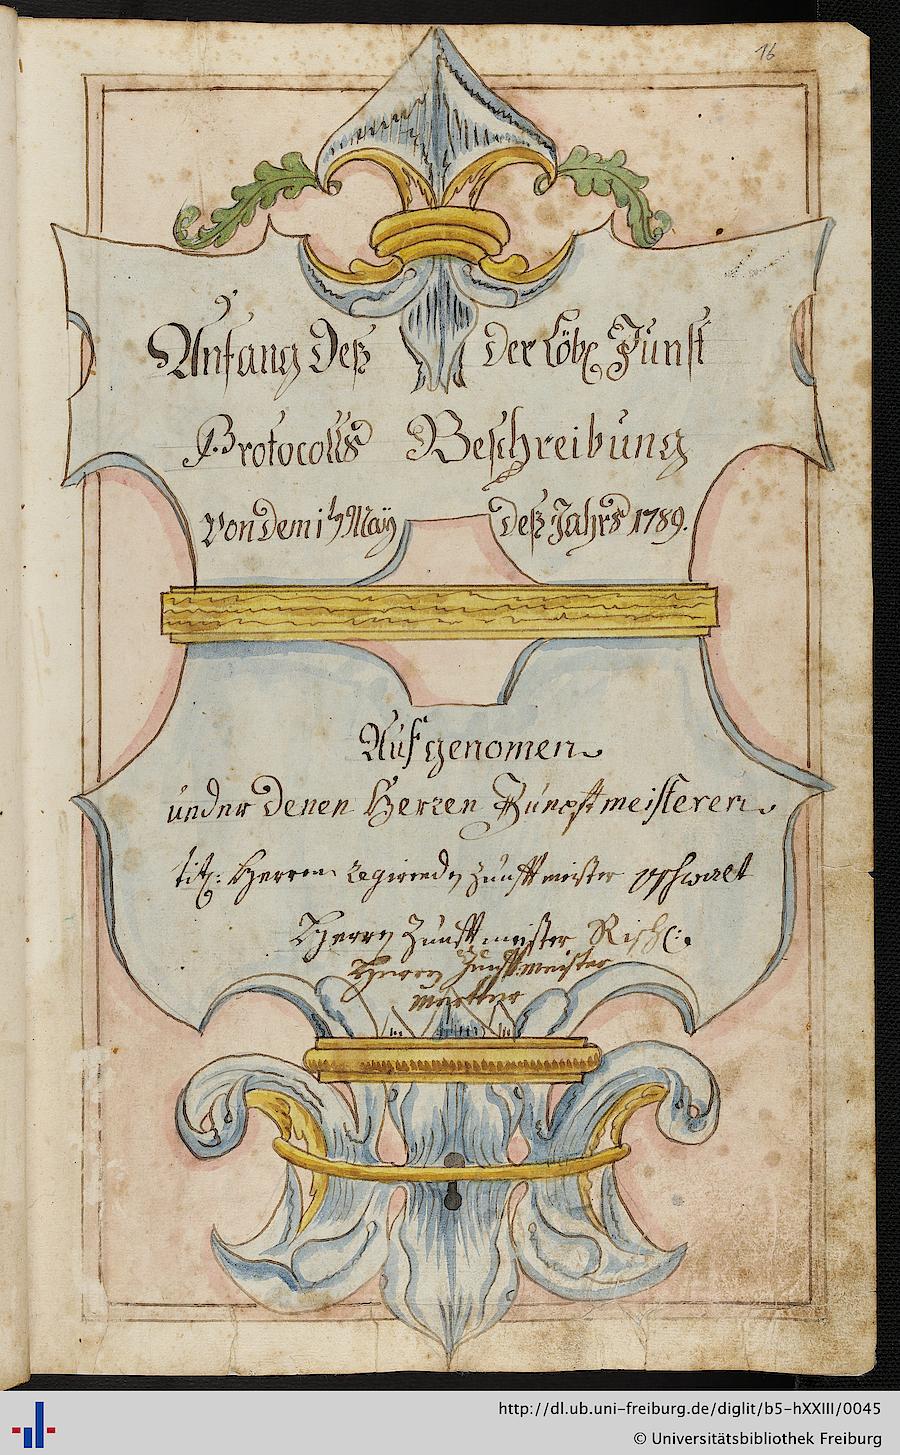 16
Anfang deß der löbl Zunft
Protocolls Beschreibung
Von dem 17 Maÿ deß Jahrs 1789.
Auf genomen
under denen Herren Zunpftmeisteren
tit: Herren Regirendn Zunfftmeister
Herrn Zunfftmeister Risch
Herrn Zunfftmeister
http://dl.ub.uni-freiburg.de/diglit/b5-hXXIII/0045
© Universitätsbibliothek Freiburg